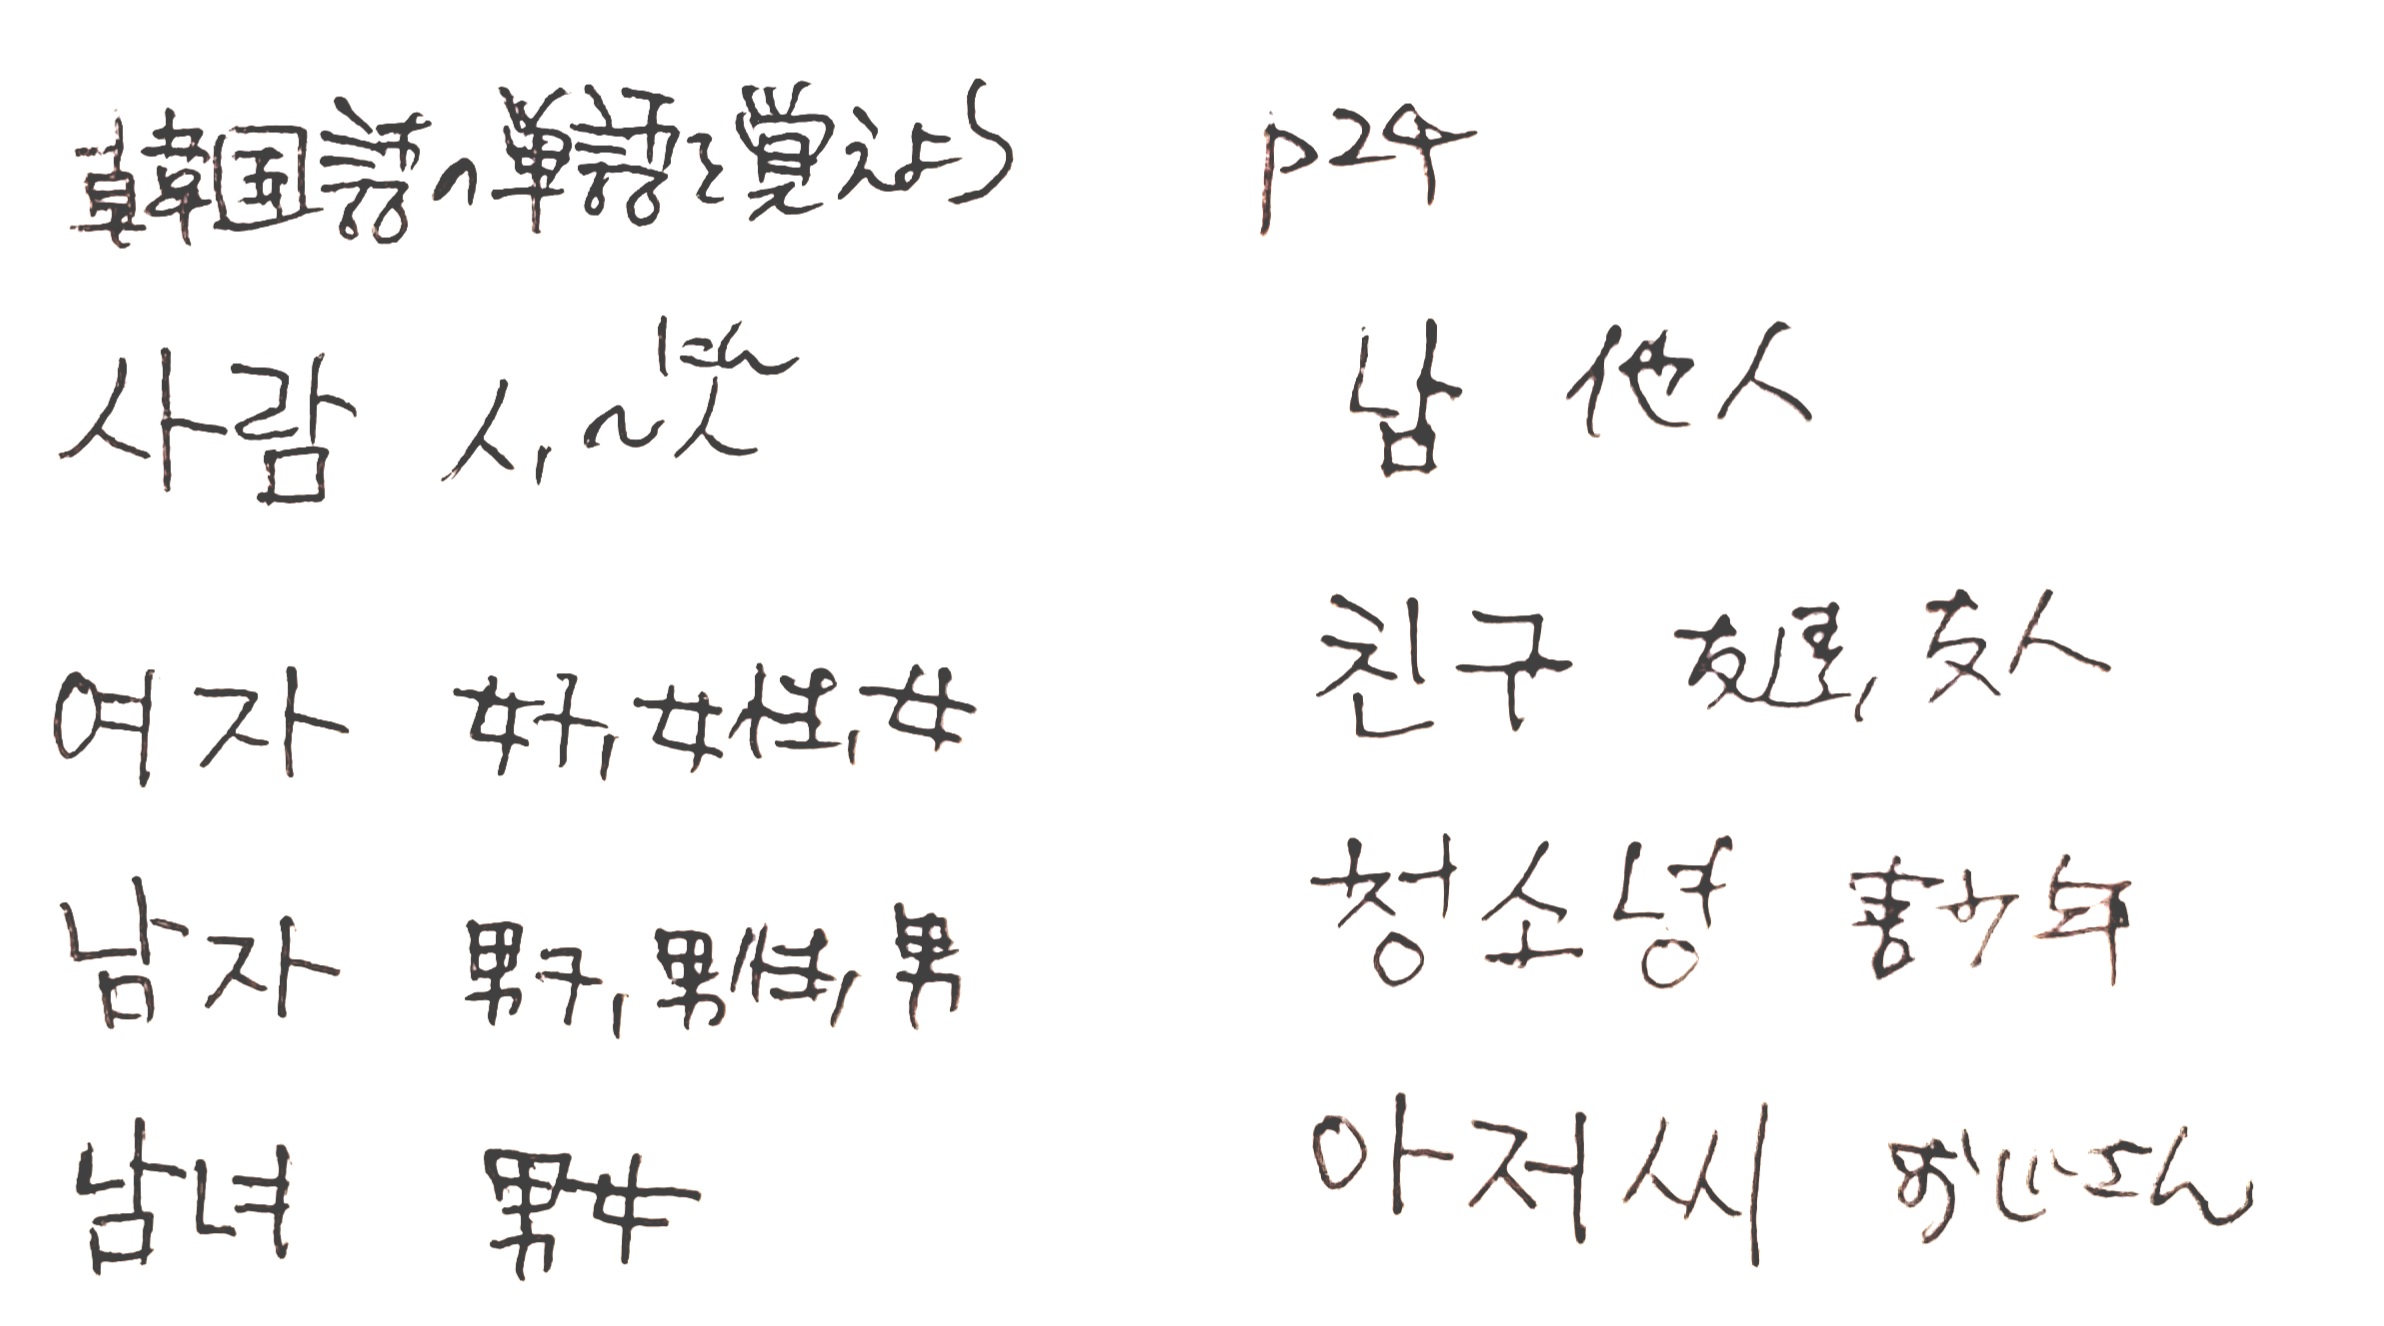 韓国語の単語を覚えよう p24
사람 人,〜人にん
여자 女子,女性,女
남자 男子,男性,男
남녀 男女
남 他人
친구 友達,友人
청소년 青少年
아저씨 おじさん